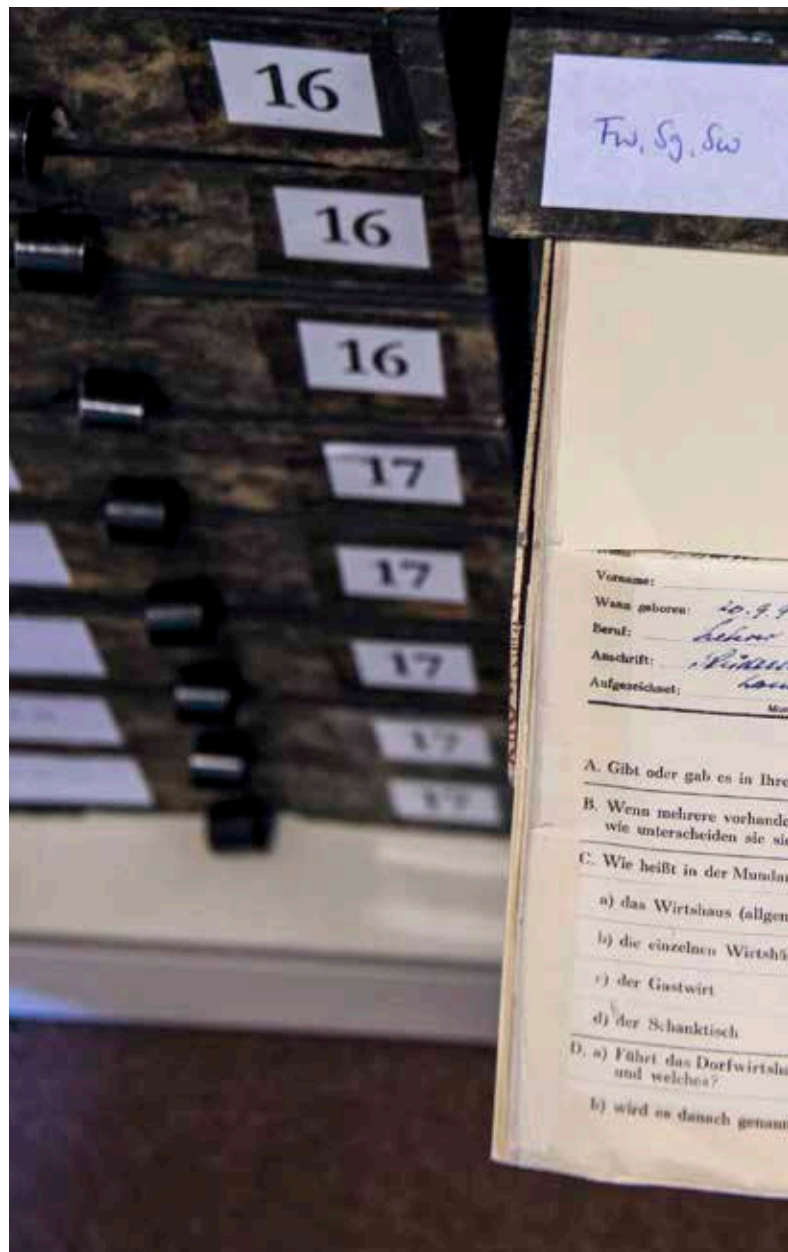 16
16
16
17
17
17
17
17
Fw, Sg, Sw
Vorname:
Wann geboren: 20.9.9
Beruf: Lehrer
Anschrift:
Aufgezeichnet:
A. Gibt oder gab es in Ihre
B. Wenn mehrere vorhande
wie unterscheiden sie si
C. Wie heißt in der Mundar
a) das Wirtshaus (allgem
b) die einzelnen Wirtshä
c) der Gastwirt
d) der Schanktisch
D. a) Führt das Dorfwirtsha
und welches?
b) wird es danach genann